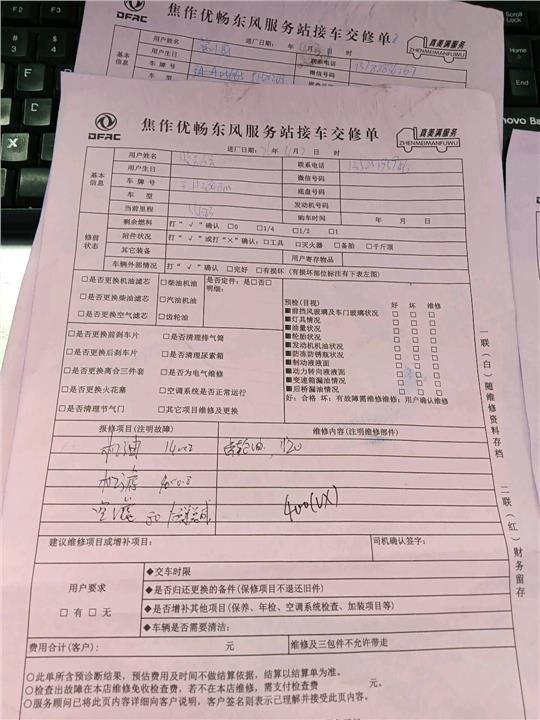 焦作优畅东风服务站接车交修单
DFAC
真美满服务
ZHENMEIMANFUWU
进厂日期: 年 月 时
基本信息
用户姓名
联系电话
用户生日
微信号码
车 牌 号
车 型
Scroll Lock
Home
End
Insert
Delete
Lenovo
焦作优畅东风服务站接车交修单
DFAC
真美满服务
ZHENMEIMANFUWU
进厂日期: 年 11月 日 时
基本信息
用户姓名 联系电话
用户生日 微信号码
车 牌 号 底盘号码
车 型 发动机号码
当前里程 购车时间 年 月 日
修前状态
剩余燃料 打“√”确认 □0 □1/4 □1/2 □1
附件状况 打“√”或打“×”确认:□工具 □灭火器 □备胎 □千斤顶
其它装备 用户寄存物品
车辆外部情况 打“√”确认 □完好 □有损坏 (有损坏部位标注有下表左图)
□是否更换机油滤芯 □柴油机油 是否定件: 是□否□
明细:
□是否更换柴油滤芯 □汽油机油
□是否更换空气滤芯 □齿轮油
□是否更换前刹车片 □是否清理排气筒
□是否更换后刹车片 □是否清理尿素箱
□是否更换离合三件套 □是否为电气维修
□是否更换火花塞 □空调系统是否正常运行
□是否清理节气门 □其它项目维修及更换
预检(目视) 好 坏 维修
■前挡风玻璃及车门玻璃状况 □ □ □
■灯具情况 □ □ □
■油量状况 □ □ □
■轮胎状况 □ □ □
■发动机机油状况 □ □ □
■防冻防锈瓶状况 □ □ □
■制动液液面 □ □ □
■动力转向液液面 □ □ □
■变速箱漏油情况 □ □ □
■后桥漏油情况 □ □ □
好: 合格 坏: 有故障需维修维修: 用户确认维修
报修项目(注明故障) 维修内容(注明维修部件)
机油 140x2 齿轮油
机滤
空滤 50
400(VX)
建议维修项目或增补项目: 司机确认签字:
用户要求
□有 □无
◆交车时限
◆是否归还更换的备件(保修项目不退还旧件)
◆是否增补其他项目(保养、年检、空调系统检查、加装项目等)
◆车辆是否需要清洁:
费用合计(客户): 元 维修及三包件不允许带走
○此单所含预诊断结果, 预估费用及时间不做结算依据, 结算以结算单为准。
○检查出故障在本店维修免收检查费, 若不在本店维修, 需支付检查费 元。
○服务顾问已将此页内容详细向客户说明, 客户签名则表示已理解并接受此页内容。
一联(白)随维修资料存档
二联(红)财务留存